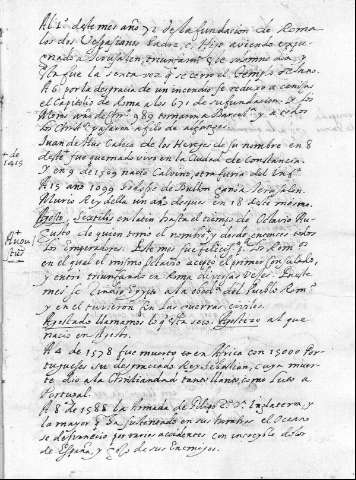 Al 1.º deste mes año 71 de la fundacion de Roma
los dos Vespasianos Padre, e Hijo aviendo expug
nado a Jerusalen, triunfaron
fue la sexta vez q se cerro el Templo de Jano.
A 6. por la desgracia de un incendio se reduxo a cenizas
el Capitolio de Roma a los 671 de su fundacion. Y los
Moros año de Chr.º 989 tomaron a Barcel.ª y a todos
los Christ.ºs pasaron a filo de alfanges.
Juan de Hus Cabeza de los Hereges de su nombre en 8
+ de
1415
deste + fue quemado vivo en la Ciudad de Constancia.
Y en 9 de 1509 nacio Calvino, otra furia del Inf.º
A 15 año 1099 Godofre de Bullon gano a Jerusalen.
Murio Rey della un año despues en 18 deste mismo.
+
Augus
tus
Agosto, Sextilis en latin hasta el tiempo de Octavio Au
gusto de quien tomo el nombre, y desde entonces todos
los Emperadores. Este mes fue felicis.º a los Rom.ºs
en el qual el mismo Octavio acepto el primer Consulado,
y entro triunfando en Roma diversas veses. En este
mes se rindio Egypto a la obed.ª del Pueblo Rom.º
y en el tuvieron fin las guerras civiles.
Agostado llamamos lo q esta seco. Agostizo al que
nacio en Agosto.
A 4 de 1578 fue muerto en Africa con 15000 Por
tugueses su desgraciado Rey Sebastian, cuya muer
te dio a la Christiandad tanto llanto, como luto a
Portugal.
A 8 de 1588 la Armada de Felipe 2.º Inglaterra, y
la mayor q ha sustentado en sus hombros el Oceano
se desvanecio por varios accidentes con increyble dolor
de España, y gozo de sus Enemigos.